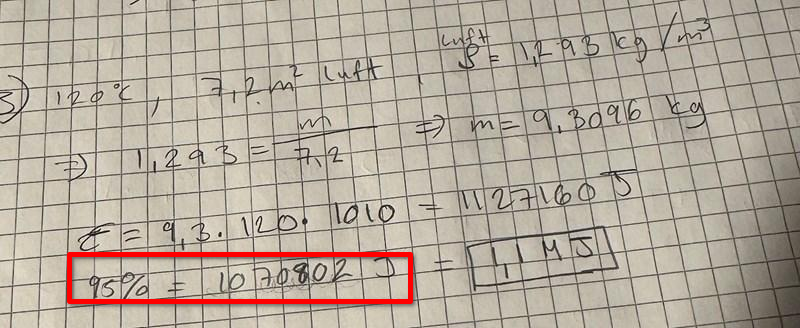 3) 120°C, 7,2 m² luft, luft ρ = 1,293 kg/m³
=> 1,293 = m/7,2 => m = 9,3096 kg
E = 9,3 · 120 · 1010 = 1127160 J
95% = 1070802 J = 1,1 MJ